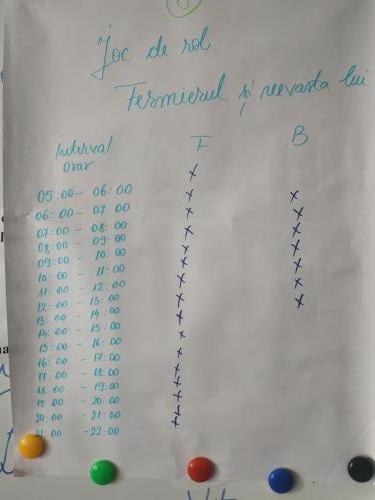 Joc de rol.
Fermierul și nevasta lui
Interval orar F B
x
05:00 - 06:00 x x
06:00 - 07:00 x x
07:00 - 08:00 x x
08:00 - 09:00 x x
09:00 - 10:00 x x
10:00 - 11:00 x x
11:00 - 12:00 x x
12:00 - 13:00 x
13:00 - 14:00 x
14:00 - 15:00 x
15:00 - 16:00 x
16:00 - 17:00 x
17:00 - 18:00 x
18:00 - 19:00 x
19:00 - 20:00 x
20:00 - 21:00
21:00 - 22:00